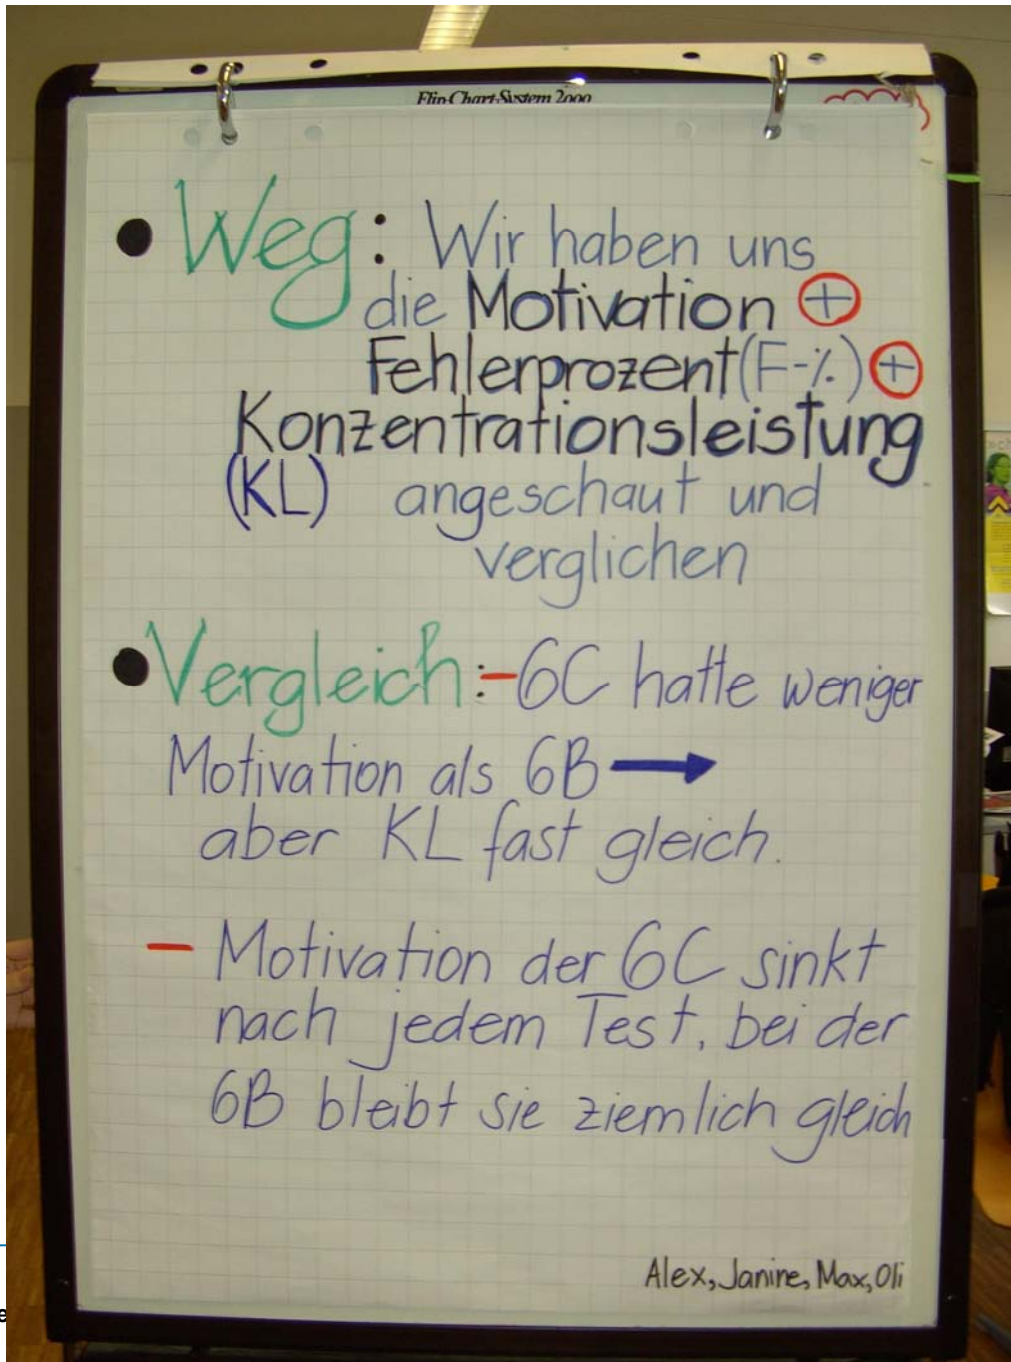 Flip-Chart-System 2000
• Weg: Wir haben uns
die Motivation +
Fehlerprozent (F-%) +
Konzentrationsleistung
(KL) angeschaut und
verglichen
• Vergleich: - 6C hatte weniger
Motivation als 6B →
aber KL fast gleich.
- Motivation der 6C sinkt
nach jedem Test, bei der
6B bleibt sie ziemlich gleich
Alex, Janine, Max, Oli